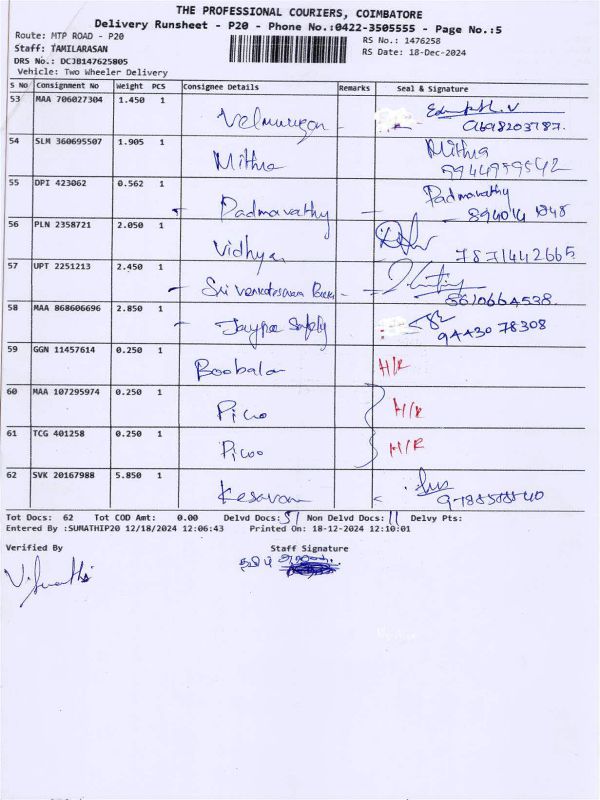 THE PROFESSIONAL COURIERS, COIMBATORE
Delivery Runsheet - P20 - Phone No.:0422-3505555 - Page No.:5
Route: MTP ROAD - P20 RS No.: 1476258
Staff: TAMILARASAN RS Date: 18-Dec-2024
DRS No.: DCJB147625805
Vehicle: Two Wheeler Delivery
S No Consignment No Weight PCS Consignee Details Remarks Seal & Signature
53 MAA 706027304 1.450 1 Velmurugan
54 SLM 360695507 1.905 1 Mithra Mithra
55 DPI 423062 0.562 1 Padmavathy Padmavathy
56 PLN 2358721 2.050 1 Vidhya 7871442665
57 UPT 2251213 2.450 1 Sri venkateswara 8610664538
58 MAA 868606696 2.850 1 94430 78308
59 GGN 11457614 0.250 1 Boobalan H/R
60 MAA 107295974 0.250 1 Picoo H/R
61 TCG 401258 0.250 1 Picoo H/R
62 SVK 20167988 5.850 1 Kesavan
Tot Docs: 62 Tot COD Amt: 0.00 Delvd Docs: 51 Non Delvd Docs: 11 Delvy Pts:
Entered By :SUMATHIP20 12/18/2024 12:06:43 Printed On: 18-12-2024 12:10:01
Verified By Staff Signature